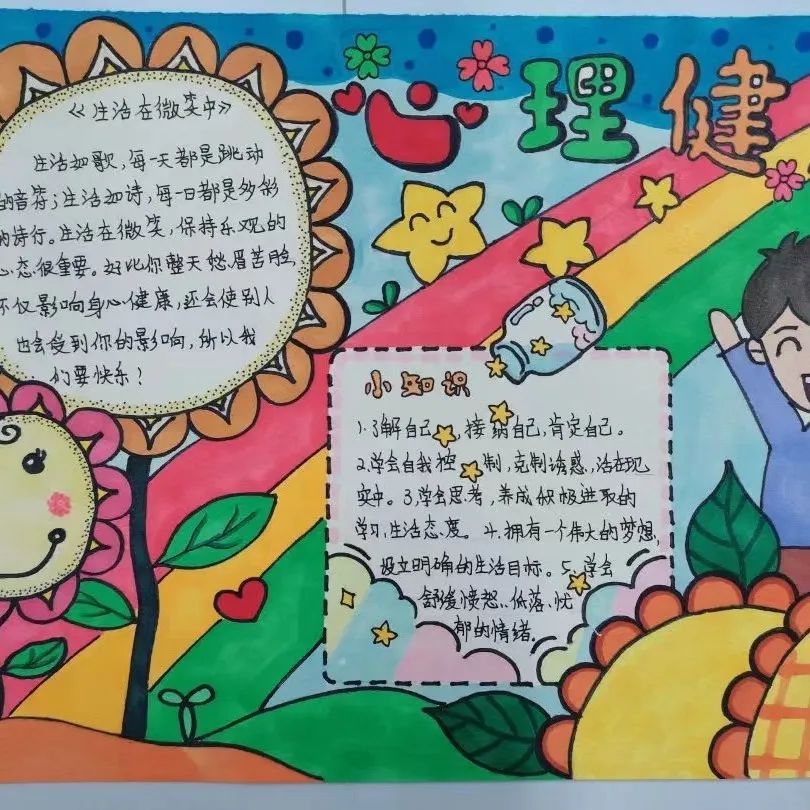 心理健
《生活在微笑中》
生活如歌，每一天都是跳动
的音符；生活如诗，每一日都是多彩
的诗行。生活在微笑，保持乐观的
心态很重要。好比你整天愁眉苦脸，
不仅影响身心健康，还会使别人
也会受到你的影响，所以我
们要快乐！
小知识
1.了解自己，接纳自己，肯定自己。
2.学会自我控制，克制诱惑，活在现
实中。3.学会思考，养成积极进取的
学习，生活态度。4.拥有一个伟大的梦想，
设立明确的生活目标。5.学会
舒缓愤怒、低落、忧
郁的情绪。